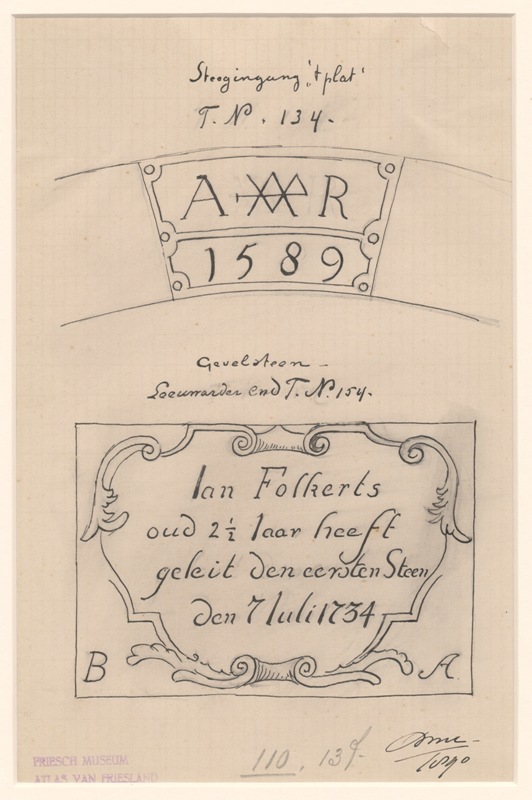 Steegingang 't plat
T. N. 134.
A R
1589
Gevelsteen
Leeuwarder end T. N. 154.
Ian Folkerts
oud 2½ Iaar heeft
geleit den eersten Steen
den 7 Iuli 1734
B A.
FRIESCH MUSEUM
ATLAS VAN FRIESLAND
110. 13